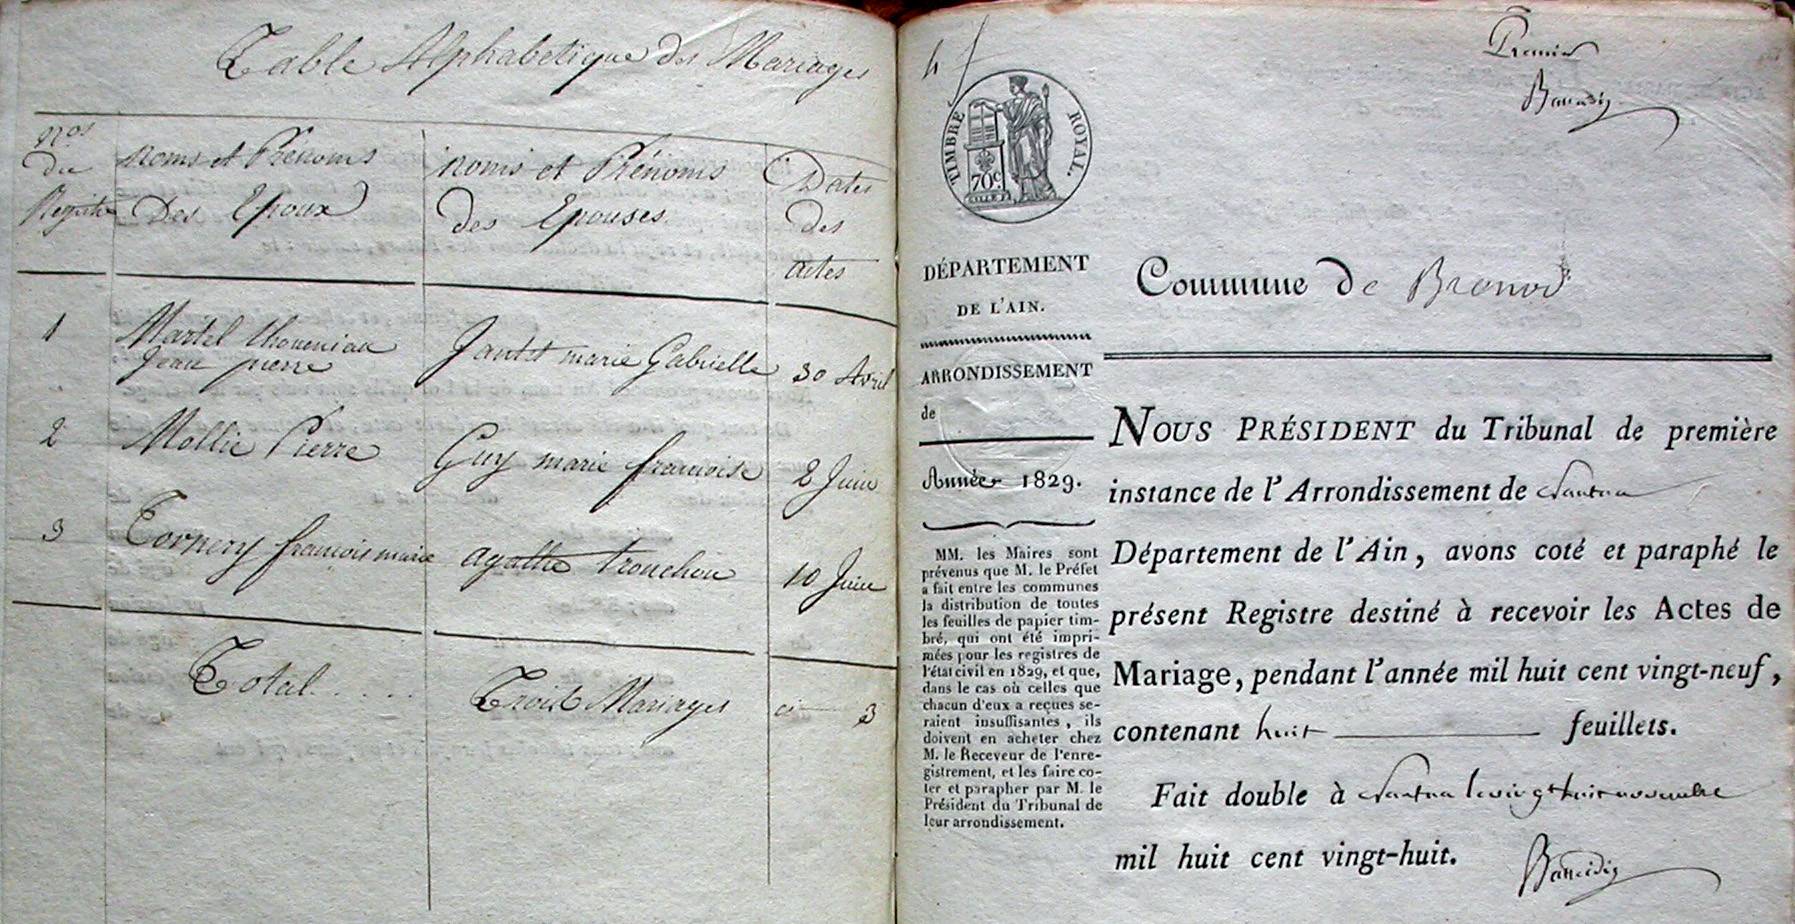 Table Alphabetique des Mariages
nos du Registre
noms et Prénoms Des Epoux
noms et Prénoms des Epouses
Dates des actes
1 Martel thoueniau Jean pierre Jantet marie Gabrielle 30 Avril
2 Mollie Pierre Guy marie francoise 2 Juin
3 Tornery francois marie agathe trouchou 10 Juin
Total..... Trois Mariages ci 3
Premier
TIMBRE ROYAL.
70c
DÉPARTEMENT
DE L'AIN.
ARRONDISSEMENT
de
Année 1829.
MM. les Maires sont
prévenus que M. le Préfet
a fait entre les communes
la distribution de toutes
les feuilles de papier tim-
bré, qui ont été impri-
mées pour les registres de
l'état civil en 1829, et que,
dans le cas où celles que
chacun d'eux a reçues se-
raient insuffisantes, ils
doivent en acheter chez
M. le Receveur de l'enre-
gistrement, et les faire co-
ter et parapher par M. le
Président du Tribunal de
leur arrondissement.
Commune de Brenod
NOUS PRÉSIDENT du Tribunal de première
instance de l'Arrondissement de Nantua
Département de l'Ain, avons coté et paraphé le
présent Registre destiné à recevoir les Actes de
Mariage, pendant l'année mil huit cent vingt-neuf,
contenant huit feuillets.
Fait double à Nantua le vingt huit novembre
mil huit cent vingt-huit.